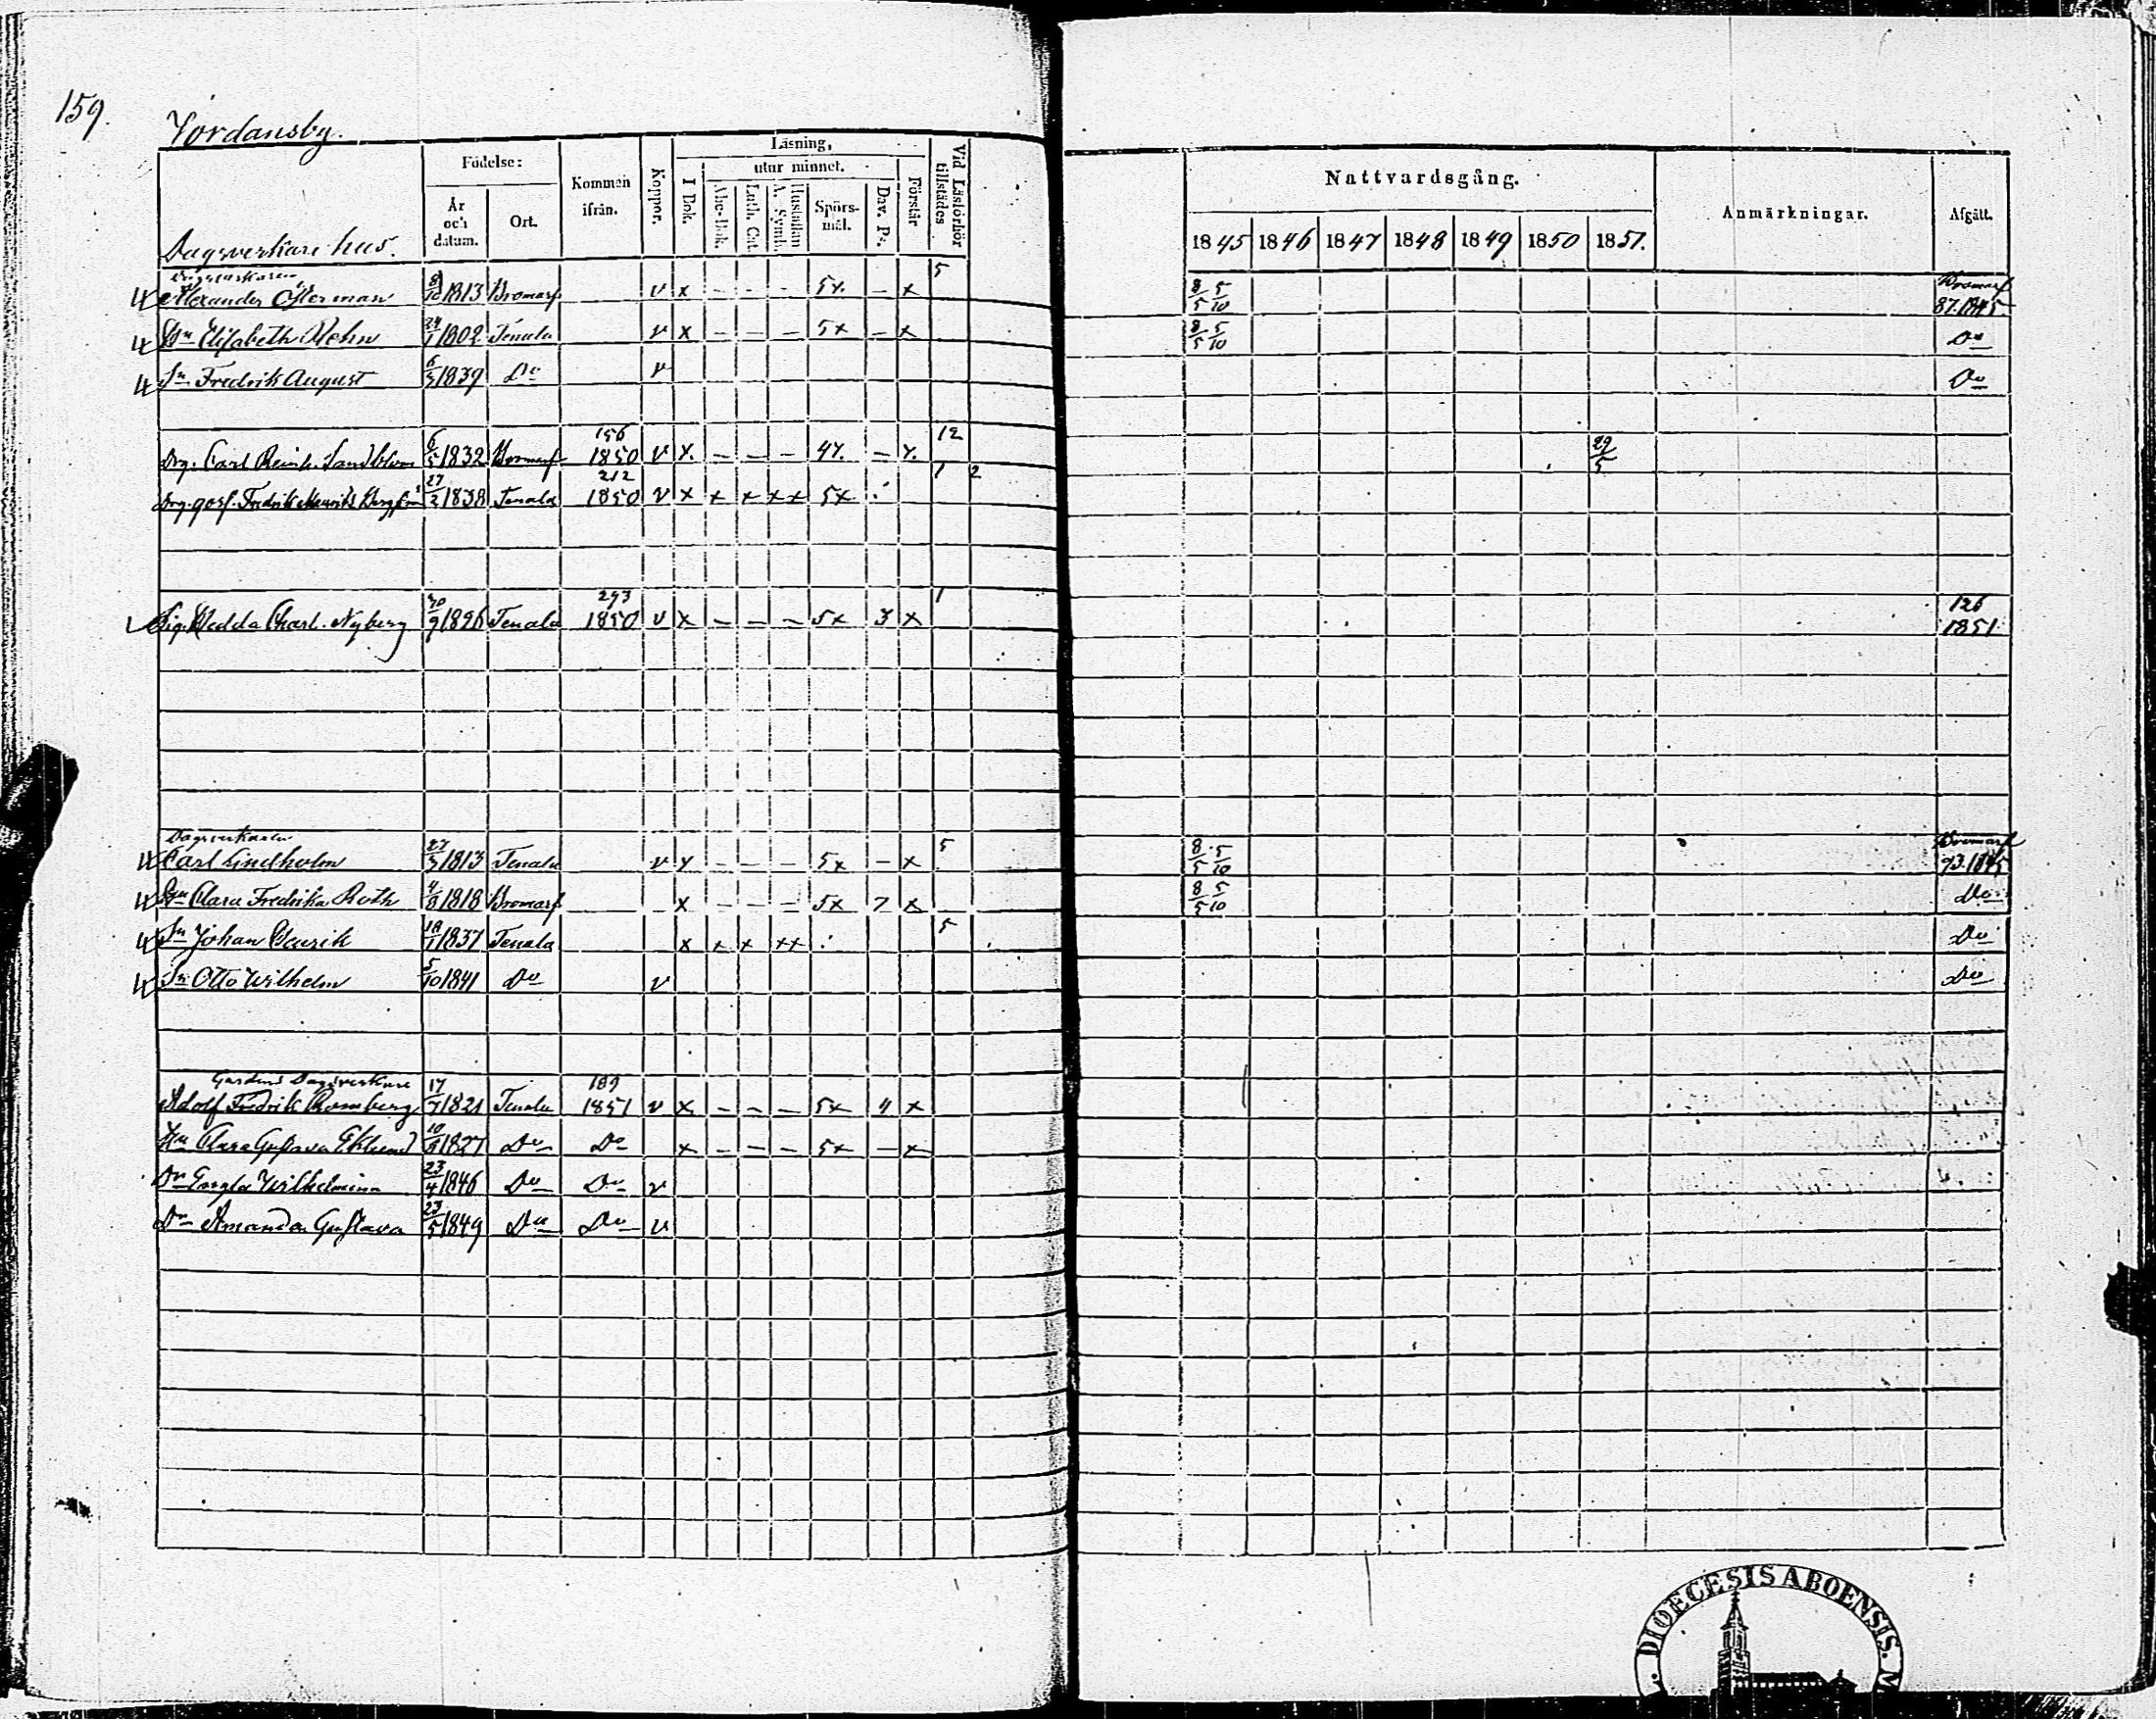 159.
Jordansby.
Födelse: Kommen ifrån. Koppor. Läsning, Vid Läsförhör tillstädes
I Bok. utur minnet. Förstår
År och datum. Ort. Abc-Bok. Luth. Cat. A. Symb. Hustaflan Spörsmål. Dav. Ps.
Nattvardsgång. Anmärkningar. Afgått.
1845 1846 1847 1848 1849 1850 1851.
Dagsverkare hus.
Dagsverkaren 5 Bromarf
4 Alexander Österman 8/10 1813 Bromarf v x - - - 5x. - x 8/5 5/10 87.1845
4 Hu Elisabeth Rehn 24/1 1802 Tenala v x - - - 5x - x 8/5 5/10 Do
4 Sn Fredrik August 6/5 1839 Do v Do
156 12
Drg. Carl Reinh. Sandblom 6/5 1832 Bromarf 1850 v x. - - - 4x. - x. 29/5
212 1 2
Drg. goss. Fredrik 27/2 1838 Tenala 1850 v x x x x x 5x
293 1 126
Pig. Hedda Charl. Nyberg 30/9 1826 Tenala 1850 v x - - - 5x 3 x 1851
Dagsverkaren 5 Bromarf
4 Carl Lindholm 27/3 1813 Tenala v x - - - 5x - x 8/5 5/10 93.1845
4 Hu Clara Fredrika Roth 4/8 1818 Bromarf x - - - 5x 7 x 8/5 5/10 Do
4 Sn Johan Henrik 18/1 1837 Tenala x x x x x 5 Do
4 Sn Otto Wilhelm 5/10 1841 Do v Do
Gardens Dagsverkare 189
Adolf Fredrik Romberg 17/7 1821 Tenala 1851 v x - - - 5x 4 x
Hu Clara Gustava Eklund 10/8 1827 Do Do x - - - 5x - x
Dr Wilhelmina 23/4 1846 Do Do v
Dr Amanda Gustava 23/5 1849 Do Do v
DIOECESIS ABOENSIS. M